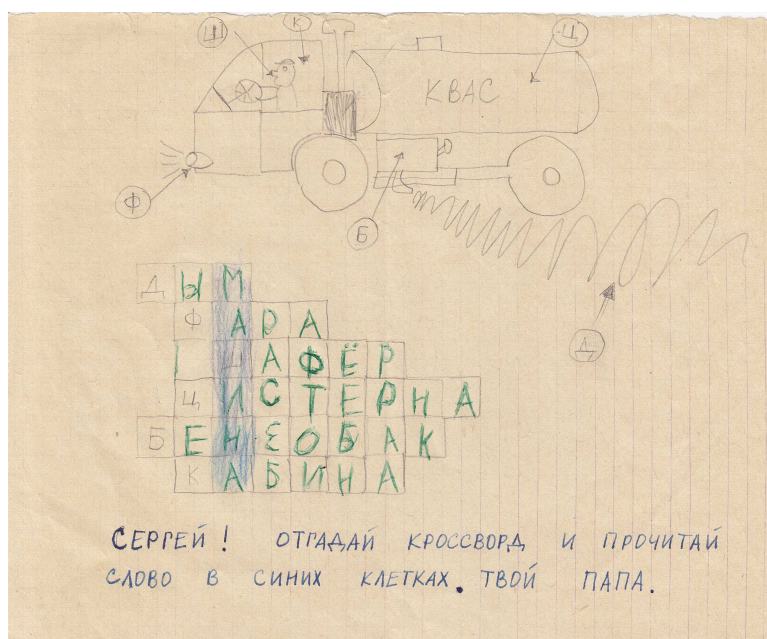 Ш К Ц
КВАС
Ф
Б
Д
ДЫМ
ФАРА
ШАФЁР
ЦИСТЕРНА
БЕНЕОБАК
КАБИНА
СЕРГЕЙ! ОТГАДАЙ КРОССВОРД И ПРОЧИТАЙ
СЛОВО В СИНИХ КЛЕТКАХ. ТВОЙ ПАПА.